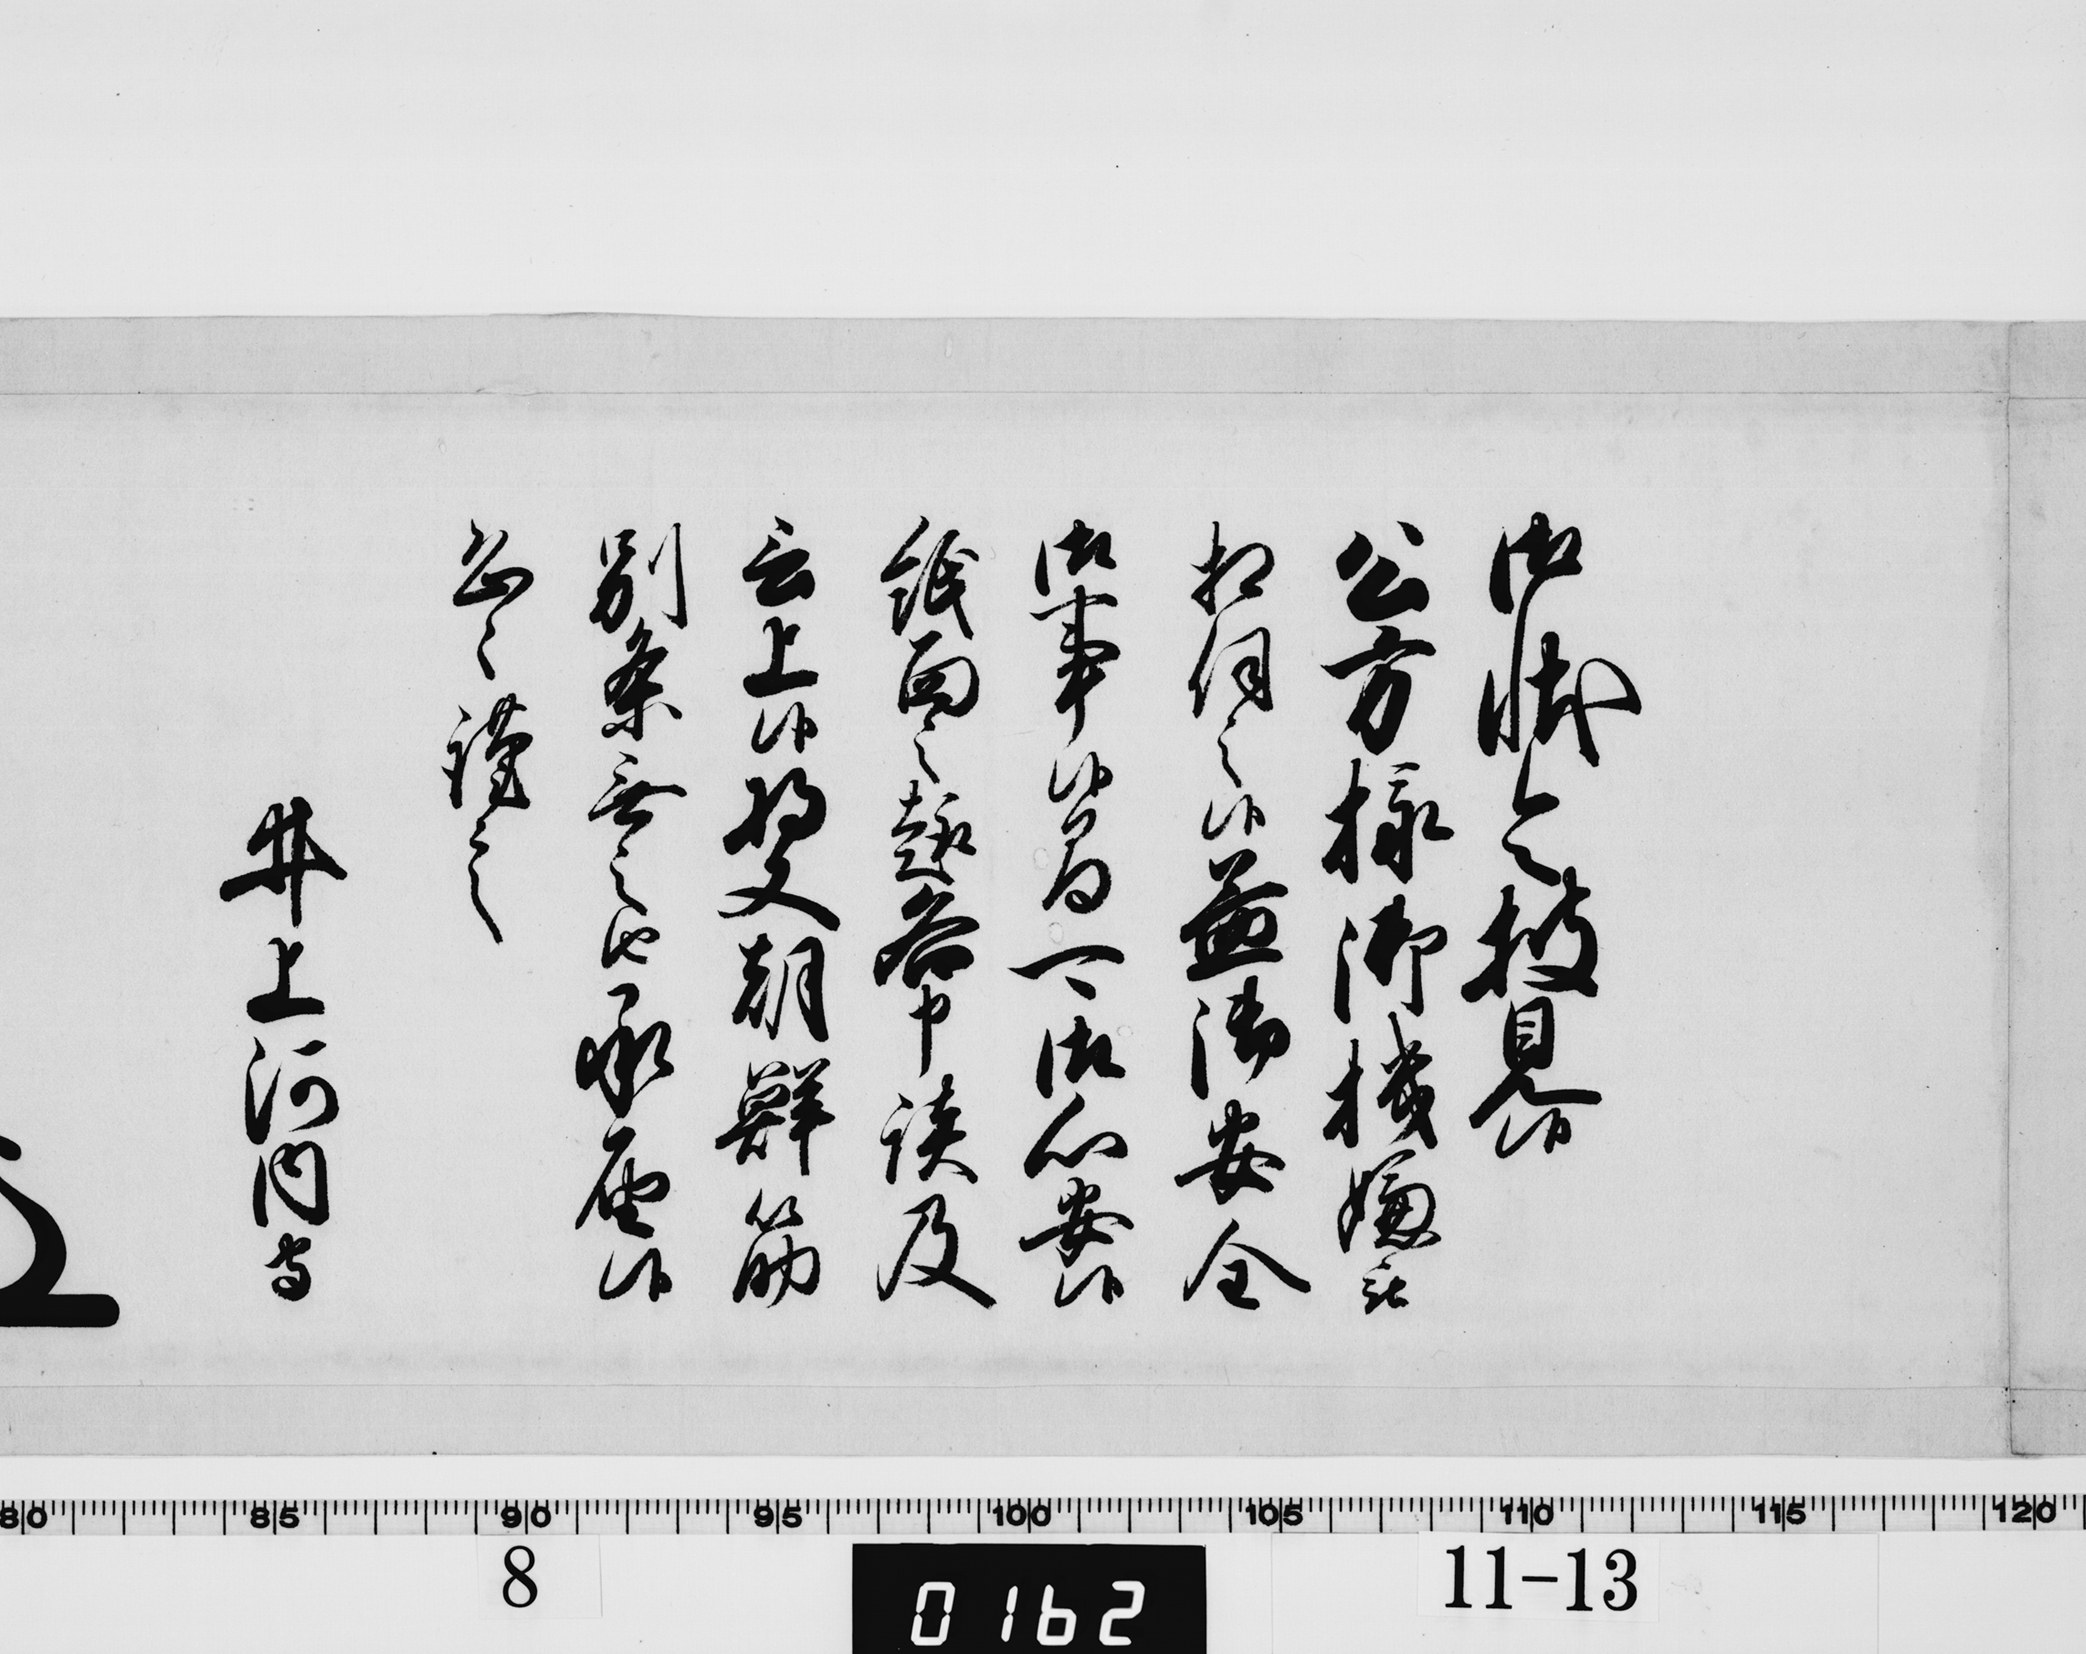 御状令披見候
公方様御機嫌被
相伺之候益御安全
御事候間可御心安候
紙面之趣各申談及
言上候将又朝鮮筋
別条無之由承届候
恐々謹言
井上河内守
80 85 90 95 100 105 110 115 120
8
0162
11-13